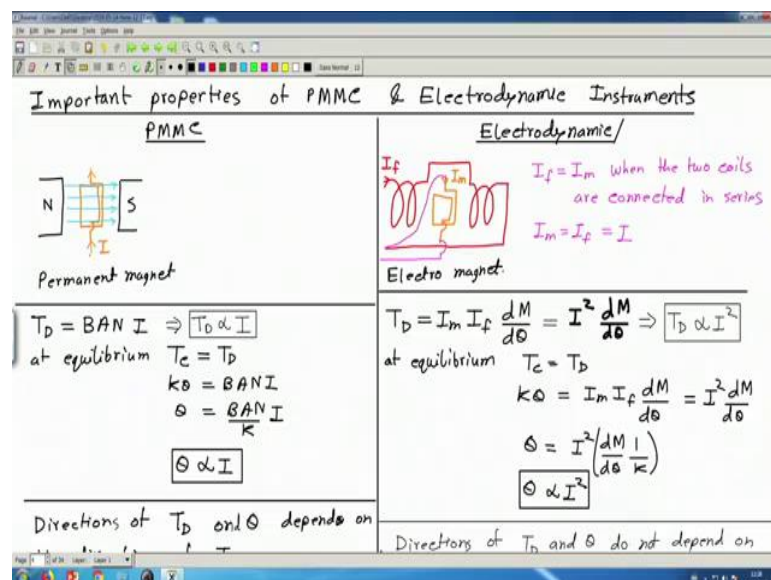 File Edit View Journal Tools Options Help
Important properties of PMMC & Electrodynamic Instruments
PMMC
N S
I
Permanent magnet
T_D = BAN I ⇒ T_D ∝ I
at equilibrium T_c = T_D
kθ = BANI
θ = BAN/K I
θ ∝ I
Directions of T_D and θ depends on
Electrodynamic/
I_f
I_m
I_f = I_m when the two coils
are connected in series
I_m = I_f = I
Electro magnet.
T_D = I_m I_f dM/dθ = I² dM/dθ ⇒ T_D ∝ I²
at equilibrium T_c = T_D
kθ = I_m I_f dM/dθ = I² dM/dθ
θ = I² (dM/dθ 1/K)
θ ∝ I²
Directions of T_D and θ do not depend on